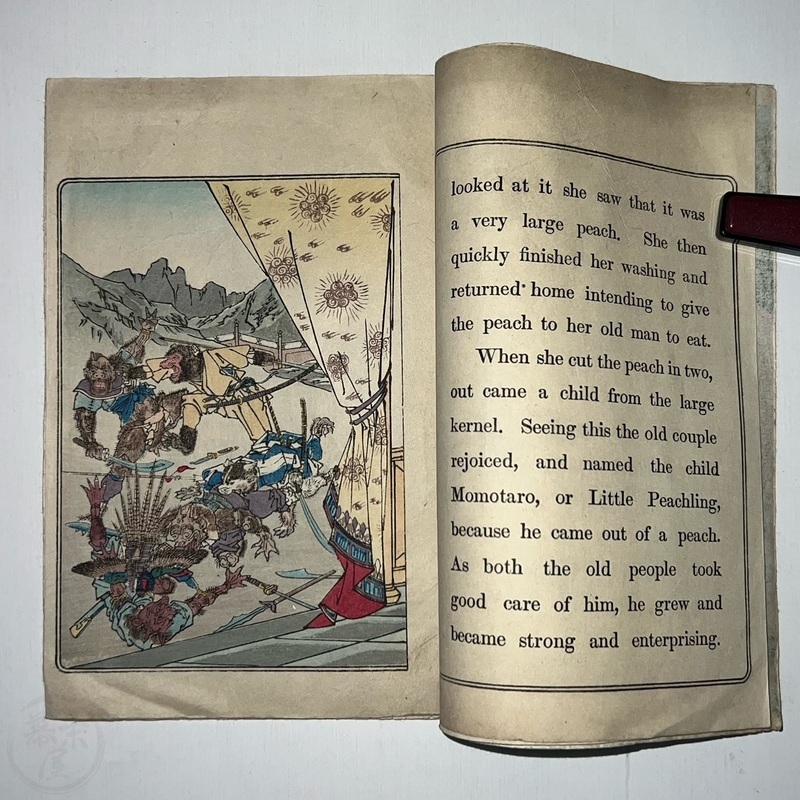 looked at it she saw that it was
a very large peach. She then
quickly finished her washing and
returned home intending to give
the peach to her old man to eat.
When she cut the peach in two,
out came a child from the large
kernel. Seeing this the old couple
rejoiced, and named the child
Momotaro, or Little Peachling,
because he came out of a peach.
As both the old people took
good care of him, he grew and
became strong and enterprising.